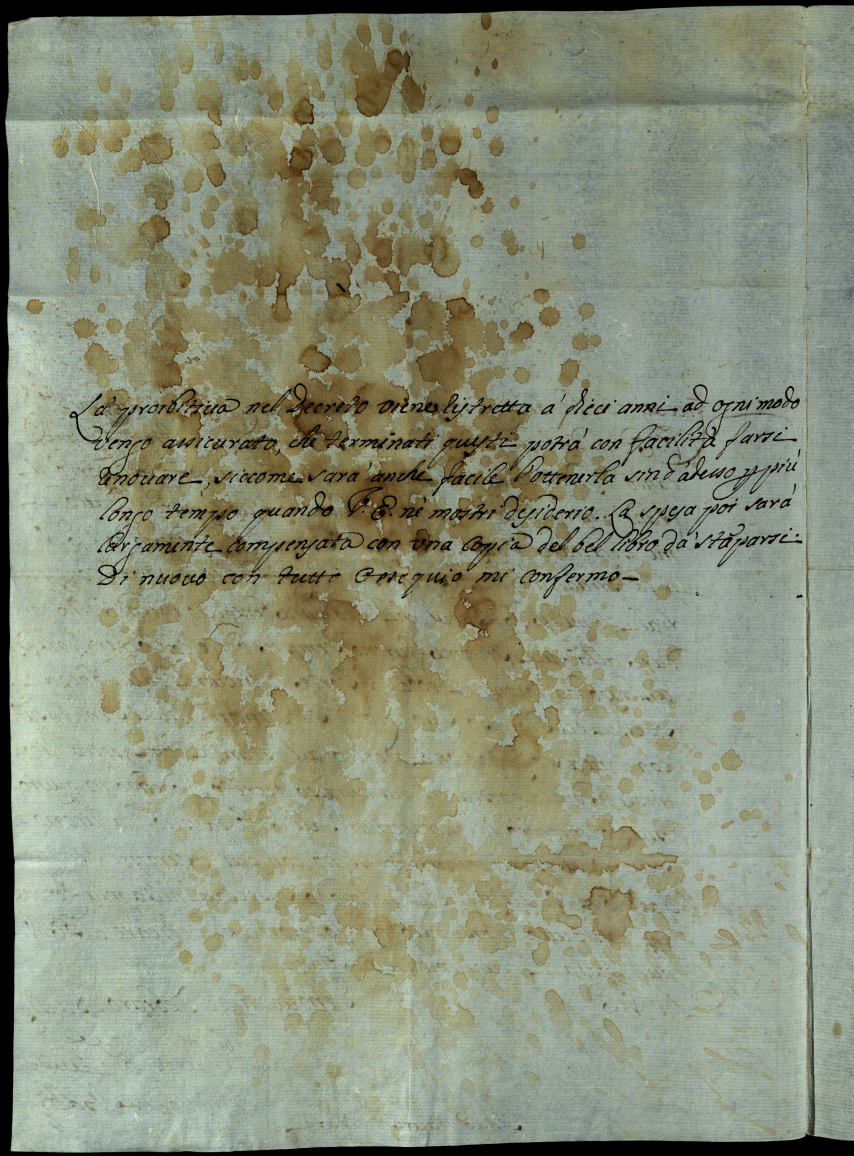 La proibitiva nel Decreto viene ristretta à dieci anni ad ogni modo
vengo assicurato, che terminati questi potrà con facilità farsi
rinovare, siccome sarà anche facile l'ottenerla sin d'adesso p più
longo tempo quando V. E. nè mostri desiderio. La spesa poi sarà
largamente compensata con una copia del bel libro da stāparsi:
Di nuovo con tutto l'osequio mi confermo_